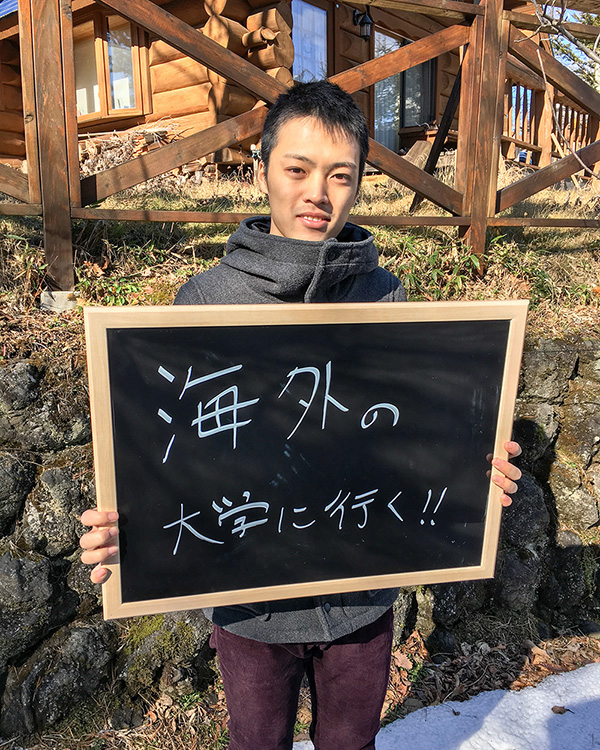 海外の
大学に行く!!